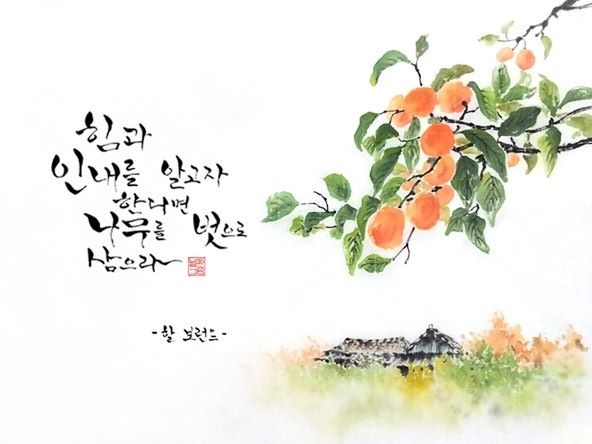 힘과
인내를 알고자
한다면
나무를 벗으로
삼으라
- 할 보런드 -